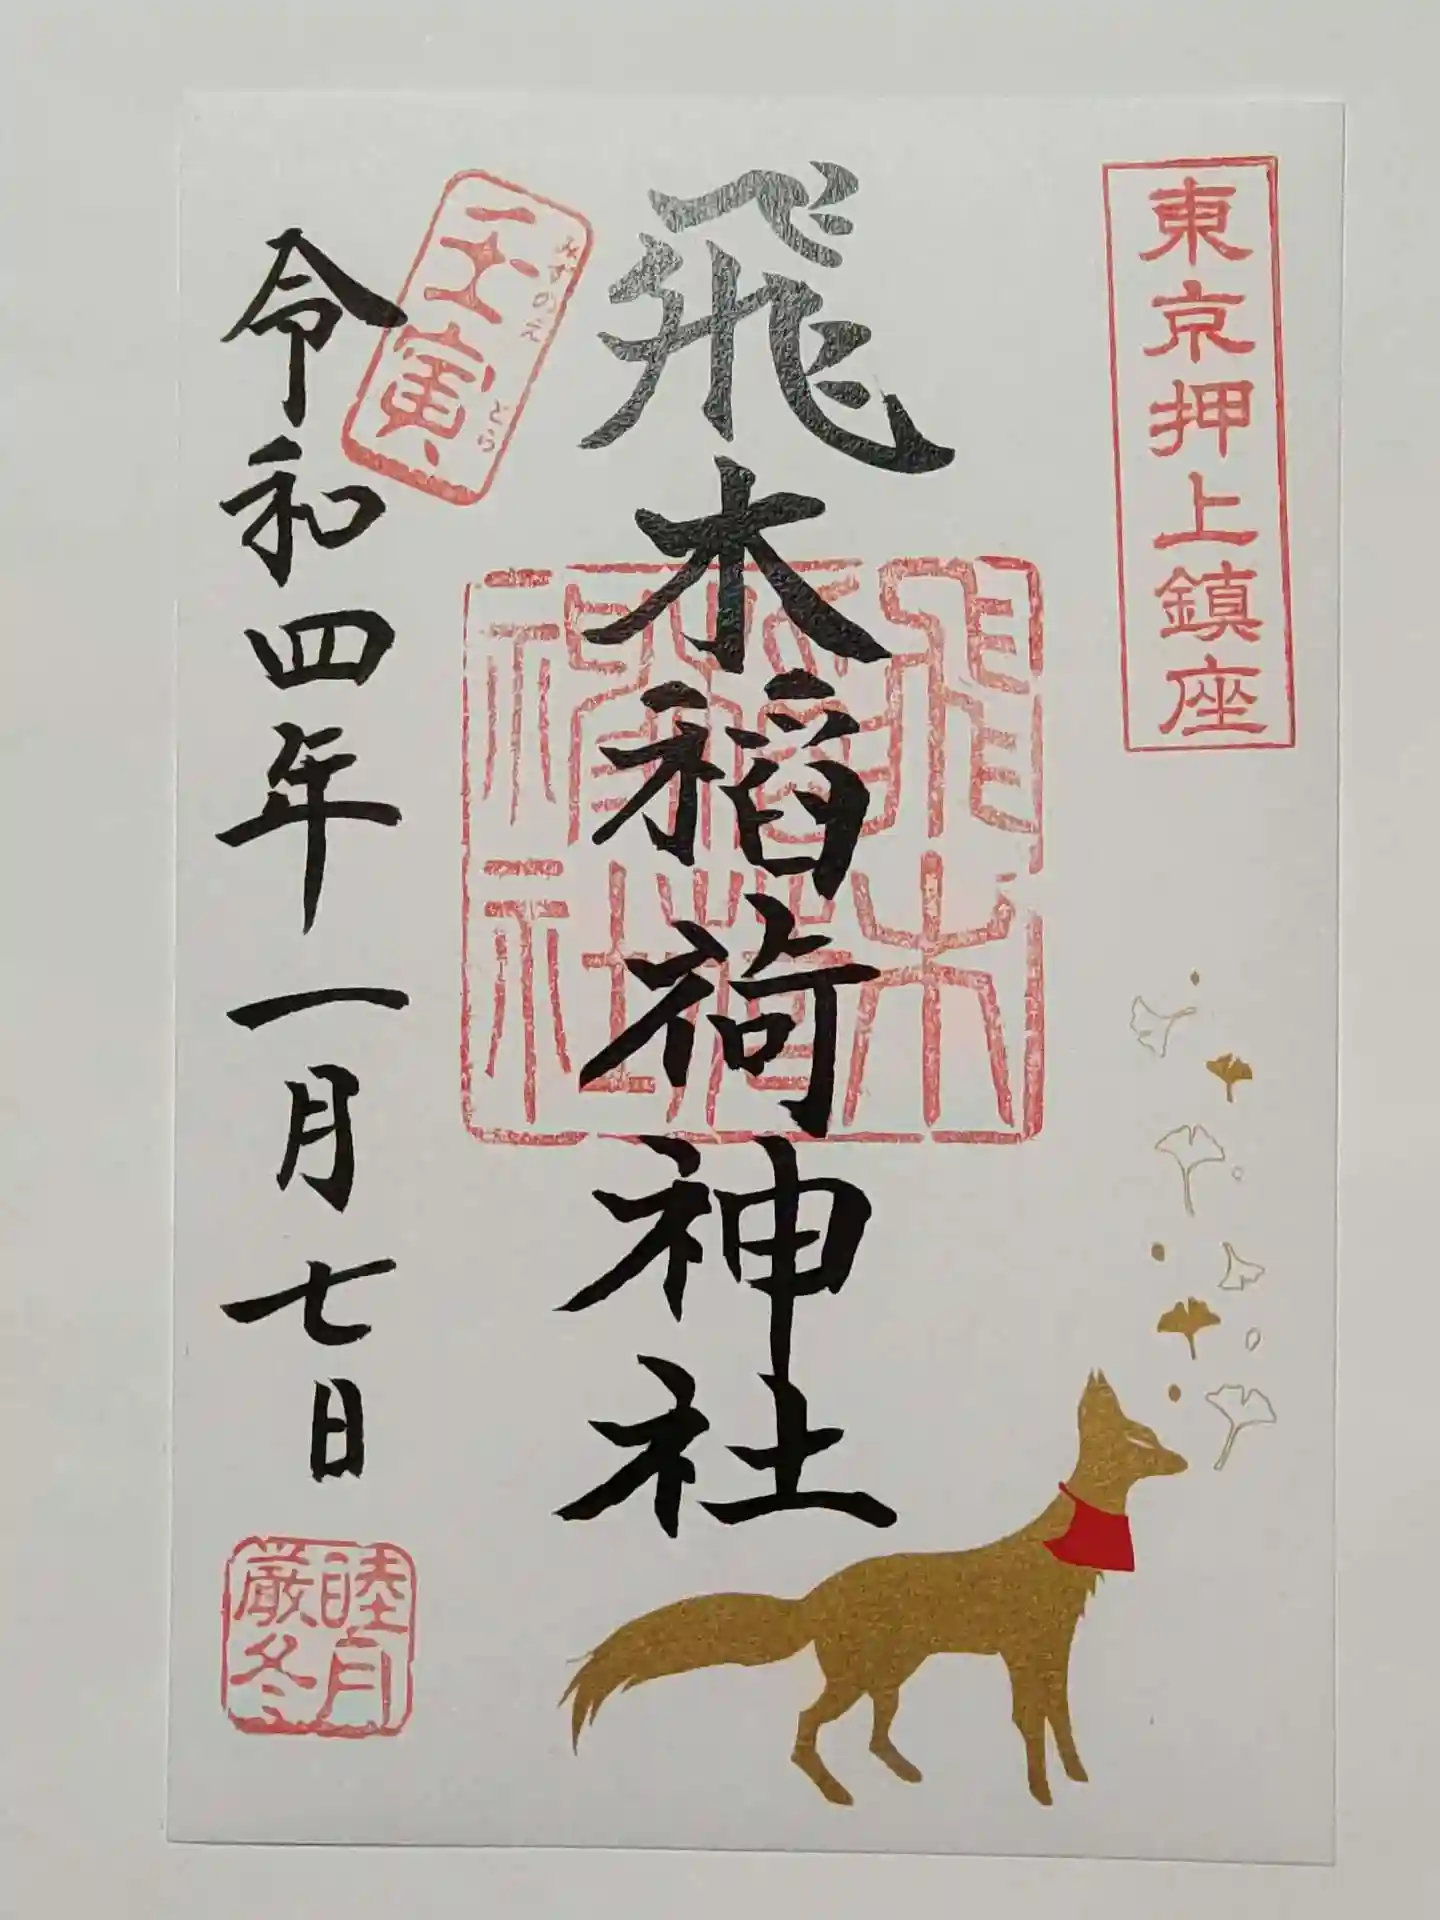 東京押上鎮座
飛木稲荷神社
飛木稲荷神社
壬寅
みずのえ とら
令和四年一月七日
睦月
厳冬